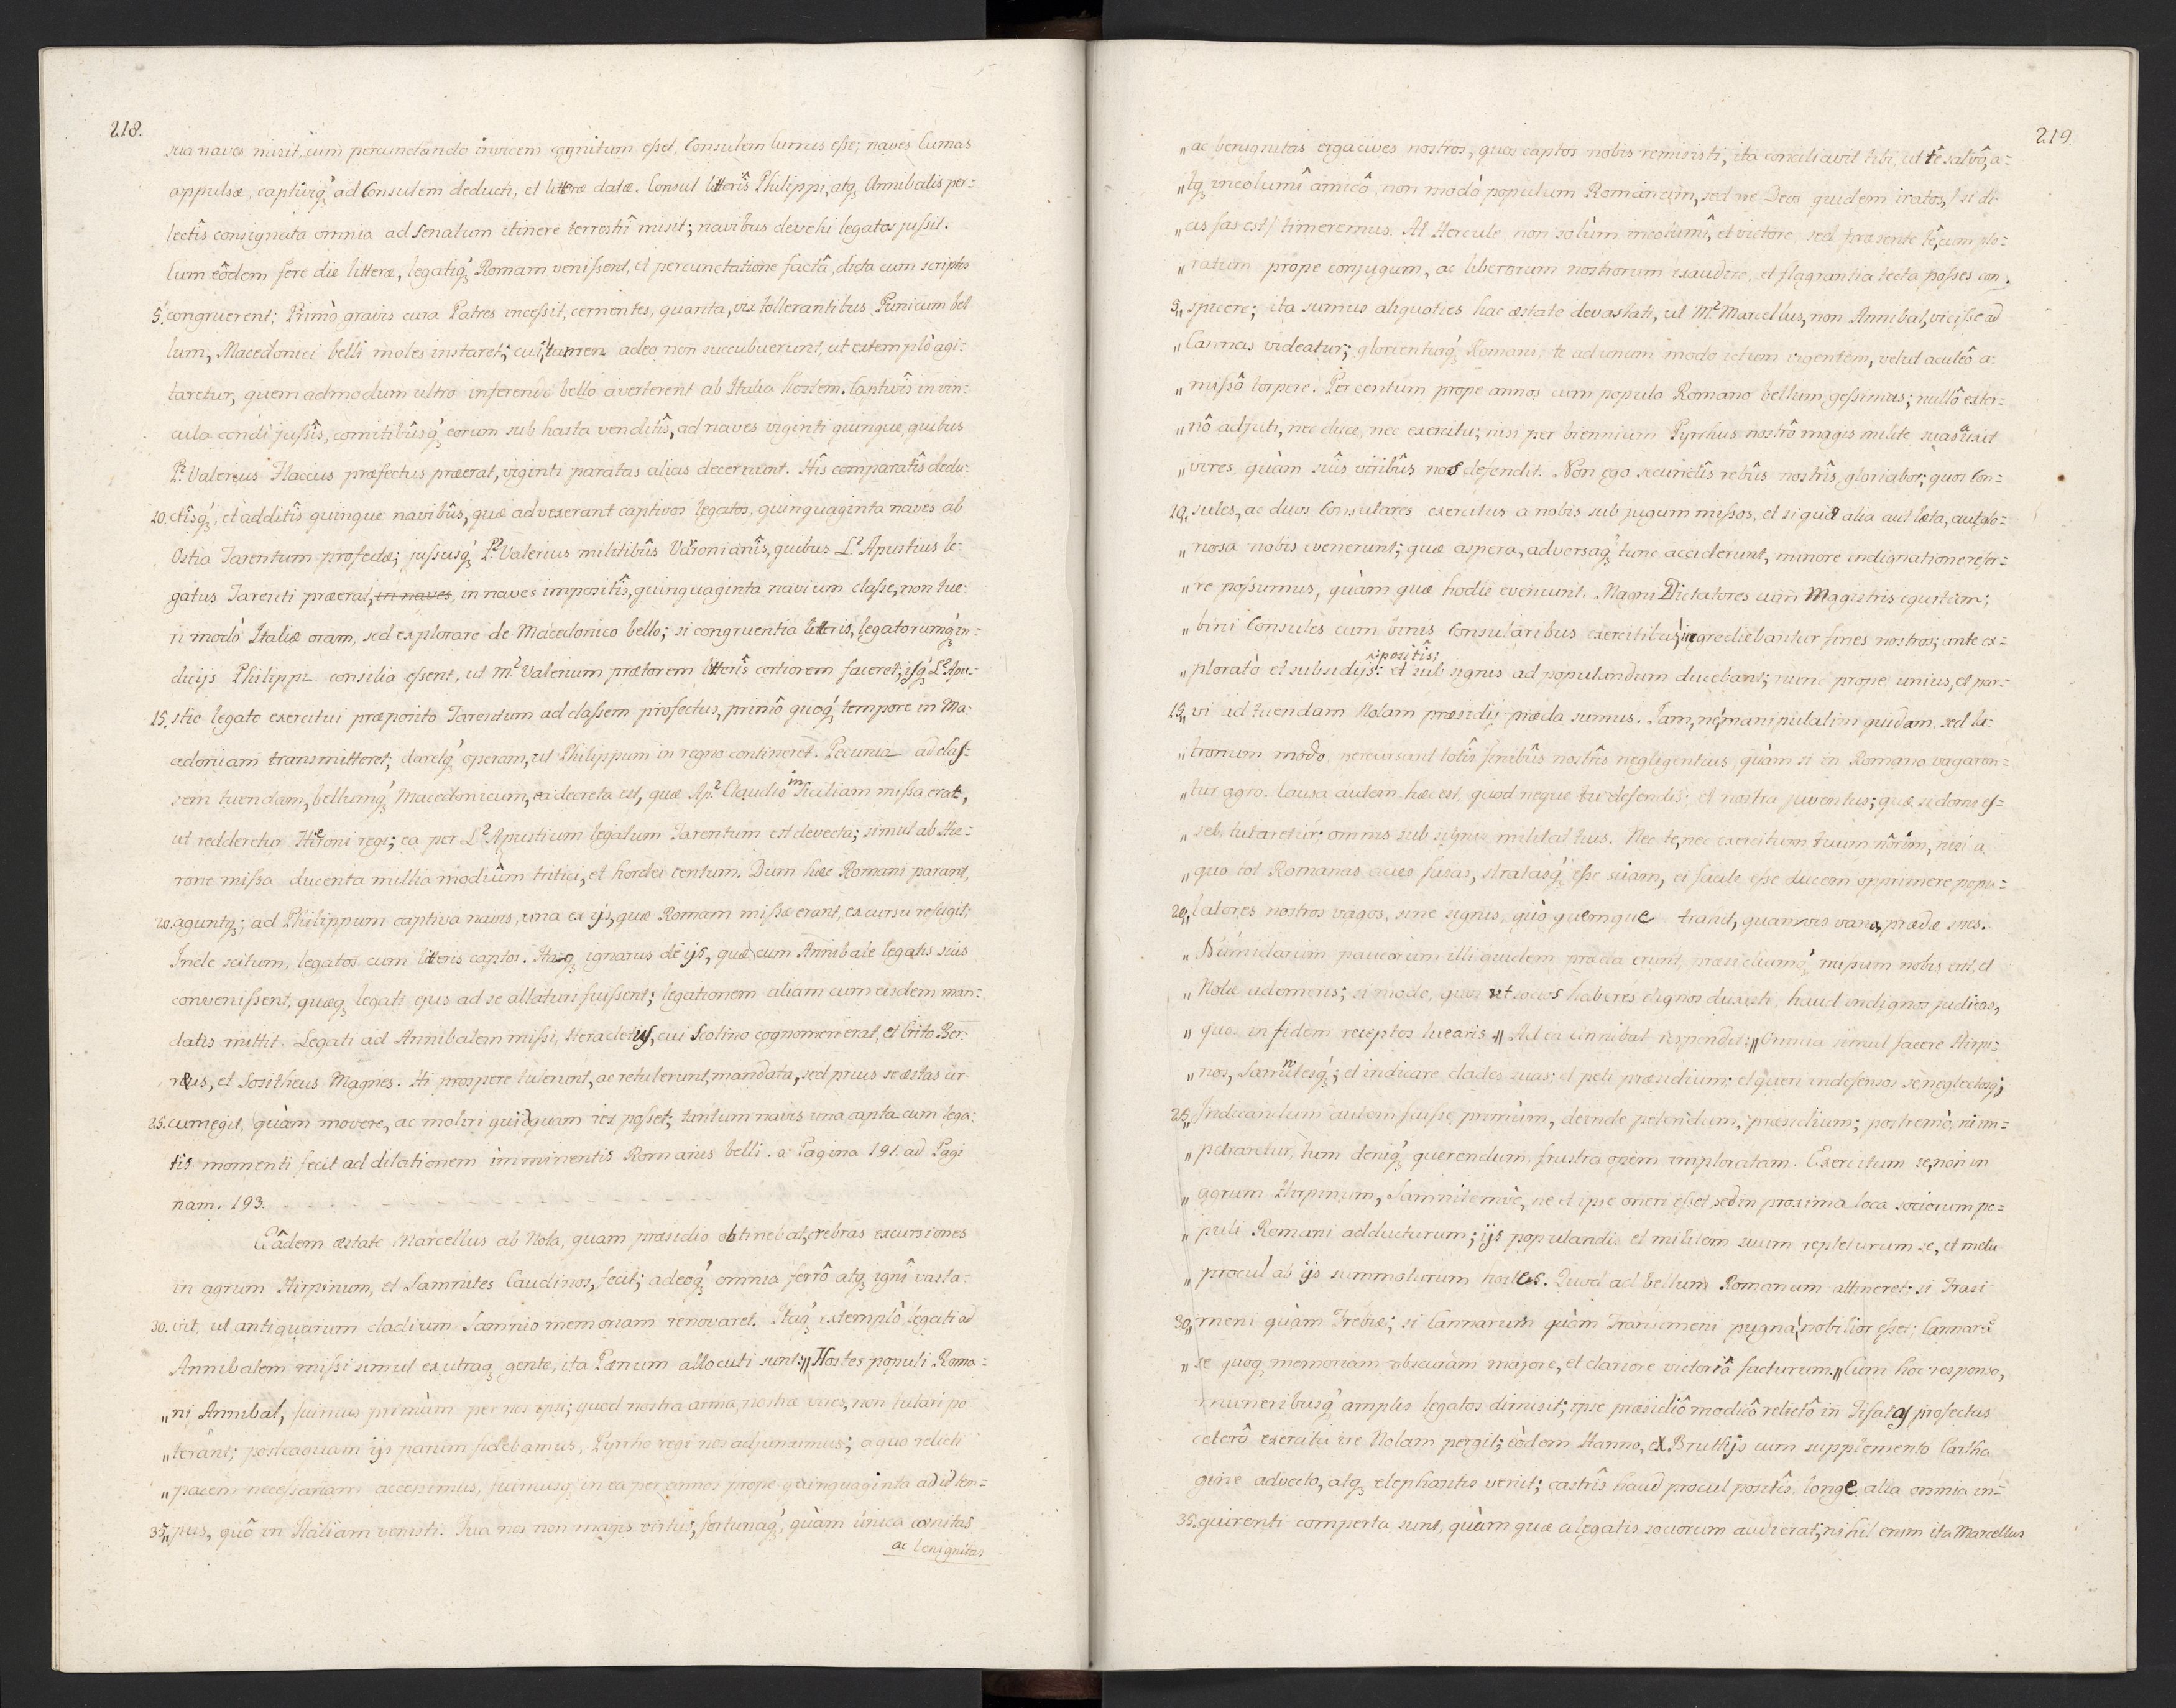 218.
sua naves misit, cum percunctando invicem cognitum esset, Consulem Cumis esse; naves Cumas
appulsæ, captivíq́ꝫ ad Consulem deducti, et litteræ datæ. Consul litterîs Philippi, atqꝫ Annibalis per=
lectîs consignata omnia ad Senatum itinere terrestrî misit; navibus devehi legatos jussit.
Cum eôdem fere die litteræ, legatiq́ꝫ Romam venissent, et percunctatione factâ, dicta cum scriptis
5. congruerent; Primò gravis cura Patres incessit, cernentes, quanta, vix tollerantibus Punicum bel
lum, Macedonici belli moles instaret; cui tamen adeo non succubuerunt, ut extemplò agi=
taretur, quemadmodum ultro inferendo bello averterent ab Italia hostem. Captivîs in vin=
cula condi jussîs, comitibûsq́ꝫ eorum sub hasta venditîs, ad naves viginti quinque, quibus
P.˙ Valerius Flaccus præfectus præerat, viginti paratas alias decernunt. Hîs comparatîs dedu=
10. ctîsq́ꝫ, et additîs quinque navibûs, quæ advexerant captivos legatos, quinquaginta naves ab
Ostia Tarentum profectæ; jussusq́ꝫ P.˙ Valerius militibûs Varonianîs, quibus L.˙ Apustius le=
gatus Tarenti præerat, in naves, in naves impositîs, quinquaginta navium classe, non tue=
ri modò Italiæ oram, sed explorare de Macedonico bello; si congruentia litteris, legatorumq́ꝫ in=
dicijs Philippi consilia essent, ut M.˙ Valerium prætorem litterîs certiorem faceret; isq́ꝫ L.˙ Apu=
15. stio legato exercitui præposito Tarentum ad classem profectus, primô quoq́ꝫ tempore in Ma=
cedoniam transmitteret; daretq́ꝫ operam, ut Philippum in regno contineret. Pecunia ad clas=
sem tuendam, bellumq́ꝫ Macedonicum, ea decreta est, quæ Ap.˙ Claudio in Siciliam missa erat,
ut redderetur Hieroni regi; ea per L.˙ Apustium legatum Tarentum est devecta; simul ab Hie=
rone missa ducenta millia modiûm tritici, et hordei centum. Dum hæc Romani parant,
20. aguntqꝫ; ad Philippum captiva navis, una ex ijs, quæ Romam missæ erant, ex cursu refugit;
Inde scitum, legatos cum litteris captos. Itaqꝫ ignarus de ijs, quæ cum Annibale legatis suis
convenissent, quæqꝫ legati ejus ad se allaturi fuissent; legationem aliam cum eisdem man=
datis mittit. Legati ad Annibalem missi, Heraclitus, cui Scotino cognomen erat, et Crito Ber=
reus, et Sositheus Magnes. Hi prospere tulerunt, ac retulerunt, mandata, sed prius se æstas cir
25. cumegit, quàm movere, ac moliri quidquam rex posset; tantum navis una capta cum lega=
tis momenti fecit ad dilationem imminentis Romanis belli. a Pagina 191. ad Pagi
nam. 193.
Eâdem æstate Marcellus ab Nola, quam præsidio obtinebat, crebras excursiones
in agrum Hirpinum, et Samnites Caudinos, fecit; adeoq́ꝫ omnia ferrô atqꝫ ignî vasta=
30. vit, ut antiquarum cladium Samnio memoriam renovaret. Itaq́ꝫ extemplò legati ad
Annibalem missi simul ex utraqꝫ gente, ita Pœnum allocuti sunt: „Hostes populi Roma=
„ni Annibal, fuimus primùm per nos ipsi; quod nostra arma, nostræ vires, non tutari po
„terant; posteaquam ijs parum fidebamus, Pyrrho regi nos adjunximus; a quo relicti
„pacem necessariam accepimus, fuimusqꝫ in ea per annos prope quinquaginta ad id tem=
35. „pus, quô in Italiam venisti. Tua nos non magis virtus, fortunaq́ꝫ quàm unica comitas
ac benignitas
219.
„ac benignitas erga cives nostros, quos captos nobis remisisti, ita conciliavit tibi, ut tê salvô, a=
„tqꝫ incolumî amicô, non modò populum Romanum, sed ne Deos quidem iratos, /: si di
„cis fas est / timeremus. At Hercule non solùm incolumî, et victore, sed præsente tê, cum plo=
„ratum prope conjugum, ac liberorum nostrorum exaudire, et flagrantia tecta posses con=
5. „spicere; ita sumus aliquoties hac æstate devastati, ut M.˙ Marcellus, non Annibal, vicisse ad
„Cannas videatur; glorienturq́ꝫ Romani, te ad unum modo ictum vigentem, velut aculeô a=
„missô torpere. Per centum prope annos cum populo Romano bellum gessimus; nullô exter=
„nô adjuti, nec duce, nec exercitu; nisi per biennium Pyrrhus nostrô magis milite suas auxit
„vires, quàm suîs viribûs nos defendit. Non ego secundîs rebûs nostrîs gloriabor; quos Con=
10. „sules, ac duos Consulares exercitus a nobis sub jugum missos, et si qua alia aut læta, aut glo=
„riosa nobis evenerunt; quæ aspera, adversaq́ꝫ tunc acciderunt, minore indignatione refer=
„re possumus, quàm quæ hodie eveniunt. Magni Dictatores cum Magistris equitum;
„bini Consules cum binis Consularibus exercitibus ingrediebantur fines nostros; ante ex=
„ploratò et subsidijs positis; et sub signis ad populandum ducebant; nunc prope unius, et par=
15. „vi ad tuendam Nolam præsidij præda sumus. Jam, ne manipulatim quidam, sed la=
„tronum modo percursant totîs finibûs nostrîs negligentius, quàm si in Romano vagaren=
„tur agro. Causa autem hæc est, quod neque tu defendis; et nostra juventus; quæ, si domi es=
„set, tutaretur; omnis sub signis militat tuis. Nec te, nec exercitum tuum nôrim, nisi a
„quo tot Romanas acies fusas, stratasq́ꝫ esse sciam, ei facile esse ducam opprimere popu=
20. „latores nostros vagos, sine signis, quò quemque trahit, quamvis vana prædæ spes.
„Numidarum paucorum illi quidem præda erunt, præsidiumq́ꝫ missum nobis erit, et
„Nolæ ademeris; si modo, quos ut socios haberes dignos duxisti, haud indignos judicas,
„quos in fidem receptos tuearis.„ Ad ea Annibal respondit: „Omnia simul facere Hirpi=
„nos, Samnitesq́ꝫ; et indicare clades suas; et peti præsidium; et queri indefensos se neglectosqꝫ;
25. „Indicandum autem fuisse primùm, deinde petendum, præsidium; postremò, ni im=
„petraretur, tum deniq́ꝫ querendum, frustra opem imploratam. Exercitum se, non in
„agrum Hirpinum, Samnitemve, ne et ipse oneri esset, sed in proxima loca sociorum po=
„puli Romani adducturum; ijs populandis et militem suum repleturum se, et metu
„procul ab ijs summoturum hostes. Quod ad bellum Romanum attineret; si Trasi
30. „meni quàm Trebiæ; si Cannarum quàm Transimeni pugna, nobilior esset; Cannarū
„se quoqꝫ memoriam obscuram majore, et clariore victoriâ facturum.„ Cum hoc responso,
muneribusq́ꝫ amplis legatos dimisit; ipse præsidiô modicô relictô in Tifatis profectus
ceterô exercitu ire Nolam pergit; eòdem Hanno, ex Bruttijs cum supplemento Cartha
gine advecto, atqꝫ elephantis venit; castrîs haud procul positîs longe alia omnia in=
35. quirenti comperta sunt, quàm quæ a legatis sociorum audierat; nihil enim ita Marcellus